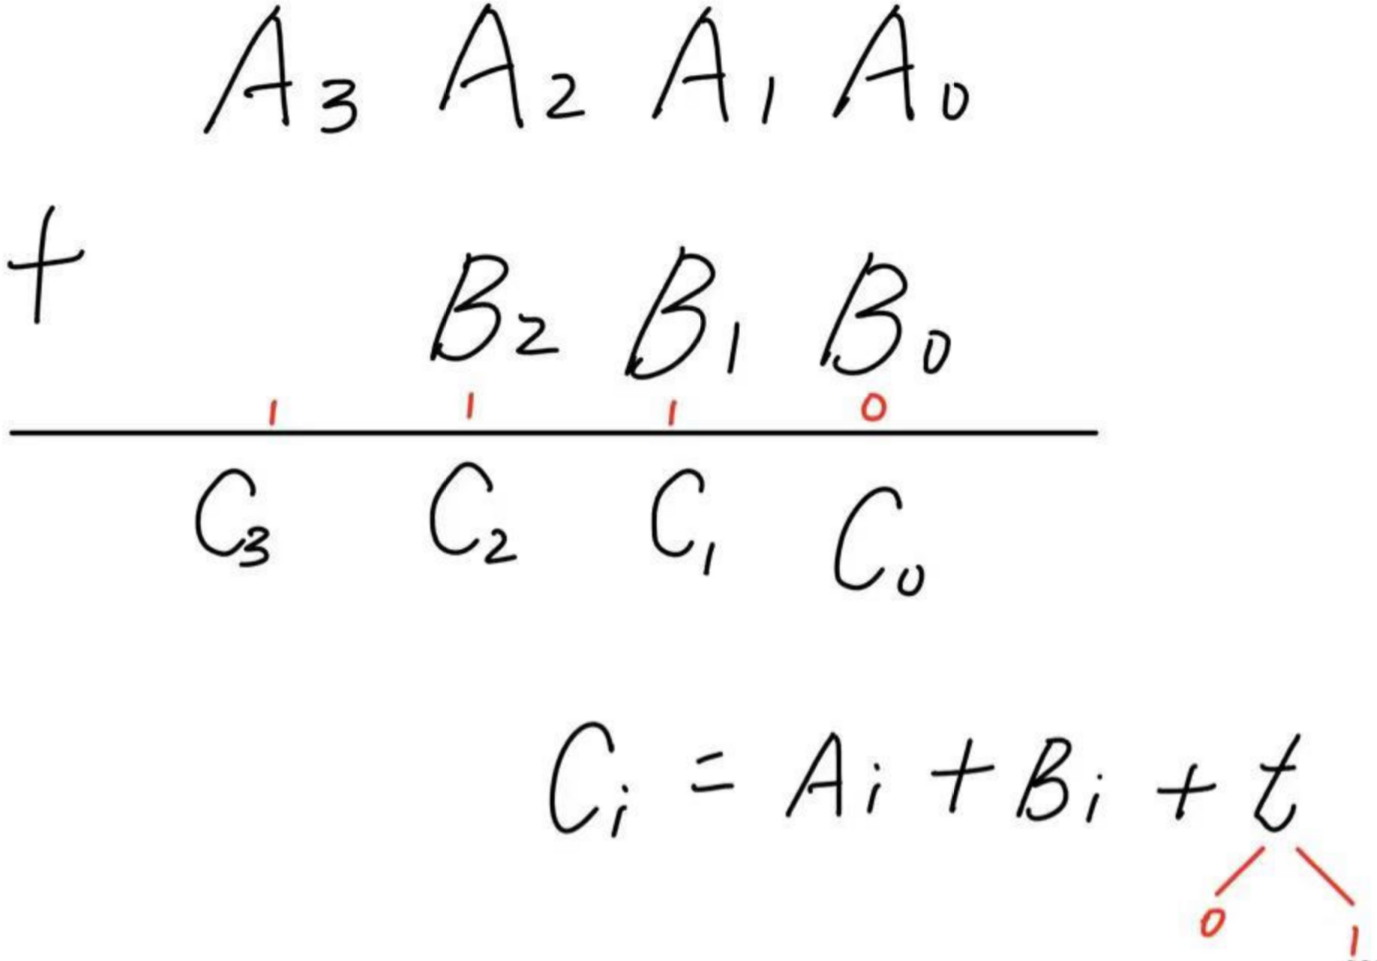 A₃ A₂ A₁ A₀
+ B₂ B₁ B₀
1 1 1 0
C₃ C₂ C₁ C₀
Cᵢ = Aᵢ + Bᵢ + t
0 1